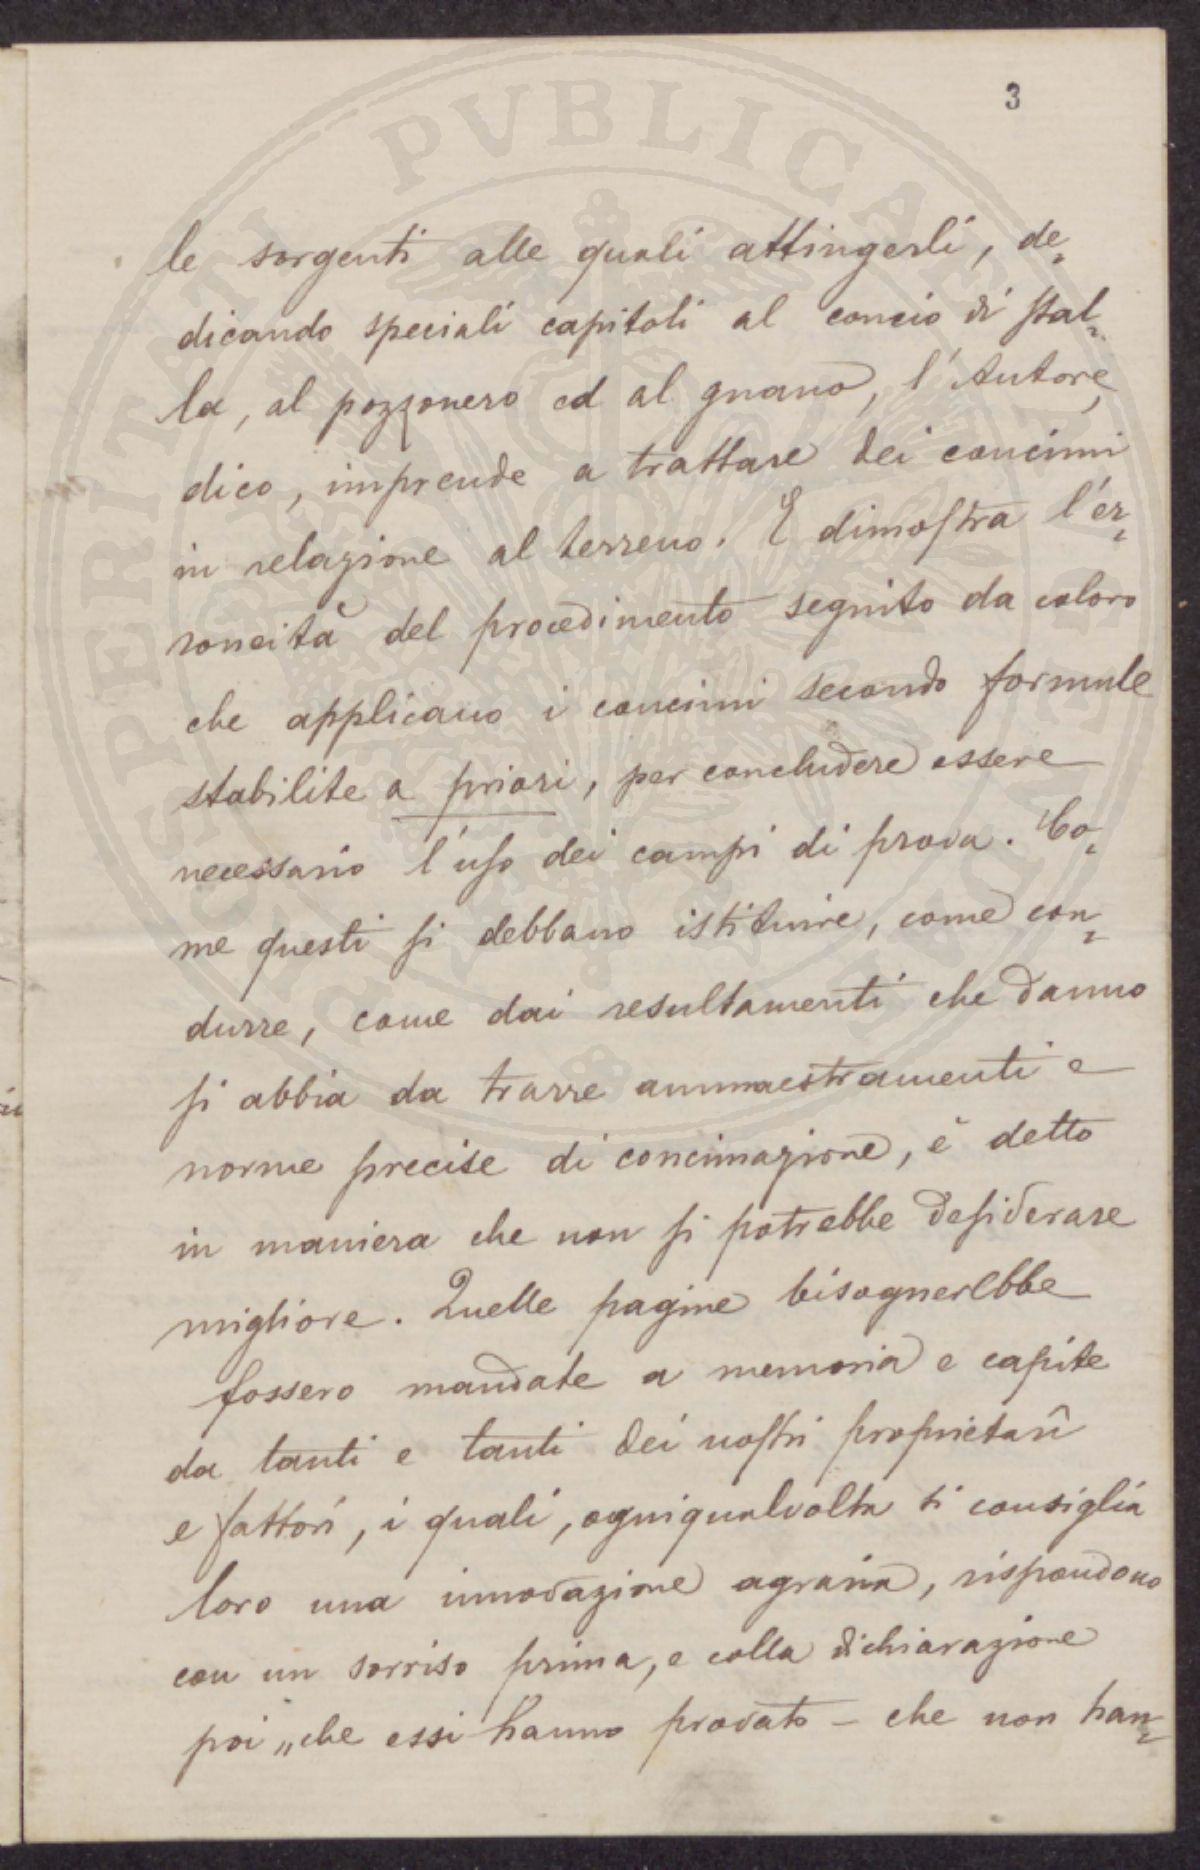 3
le sorgenti alle quali attingerli, de=
dicando speciali capitoli al concio di stal=
la, al pozzonero ed al guano, l'Autore,
dico, imprende a trattare dei concimi
in relazione al terreno. E dimostra l'er=
roneità del procedimento seguito da coloro
che applicano i concimi secondo formule
stabilite a priori, per concludere essere
necessario l'uso dei campi di prova. Co=
me questi si debbano istituire, come con=
durre, come dai resultamenti che danno
si abbia da trarre ammaestramenti e
norme precise di concimazione, è detto
in maniera che non si potrebbe desiderare
migliore. Quelle pagine bisognerebbe
fossero mandate a memoria e capite
da tanti e tanti dei nostri proprietarî
e fattori, i quali, ogniqualvolta si consiglia
loro una innovazione agraria, rispondono
con un sorriso prima, e colla dichiarazione
poi „che essi hanno provato – che non han=
PROSPERITATI PVBLICAE AVGENDAE